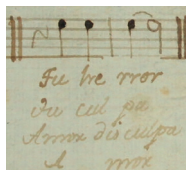 Tu he rror
tu cul pa
Amor disculpa
A mor